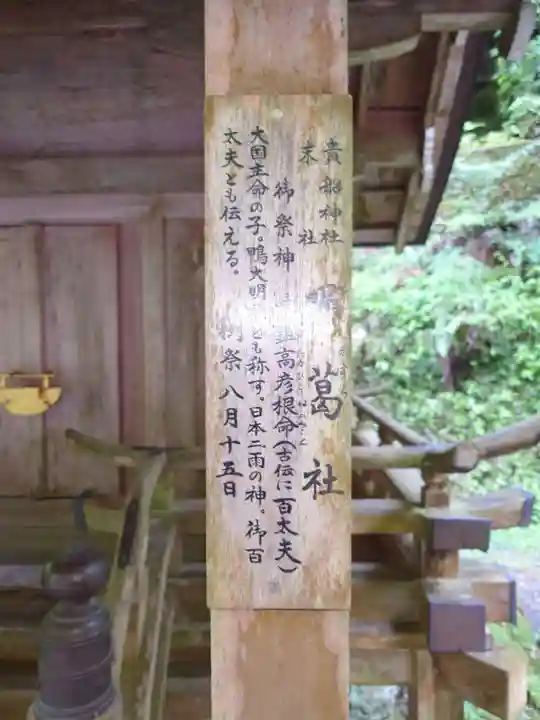 貴船神社
末社
葛社
御祭神 鉏高彦根命(古伝に百太夫)
大国主命の子。鴨大明神とも称す。日本二雨の神。御百
太夫とも伝える。
例祭 八月十五日